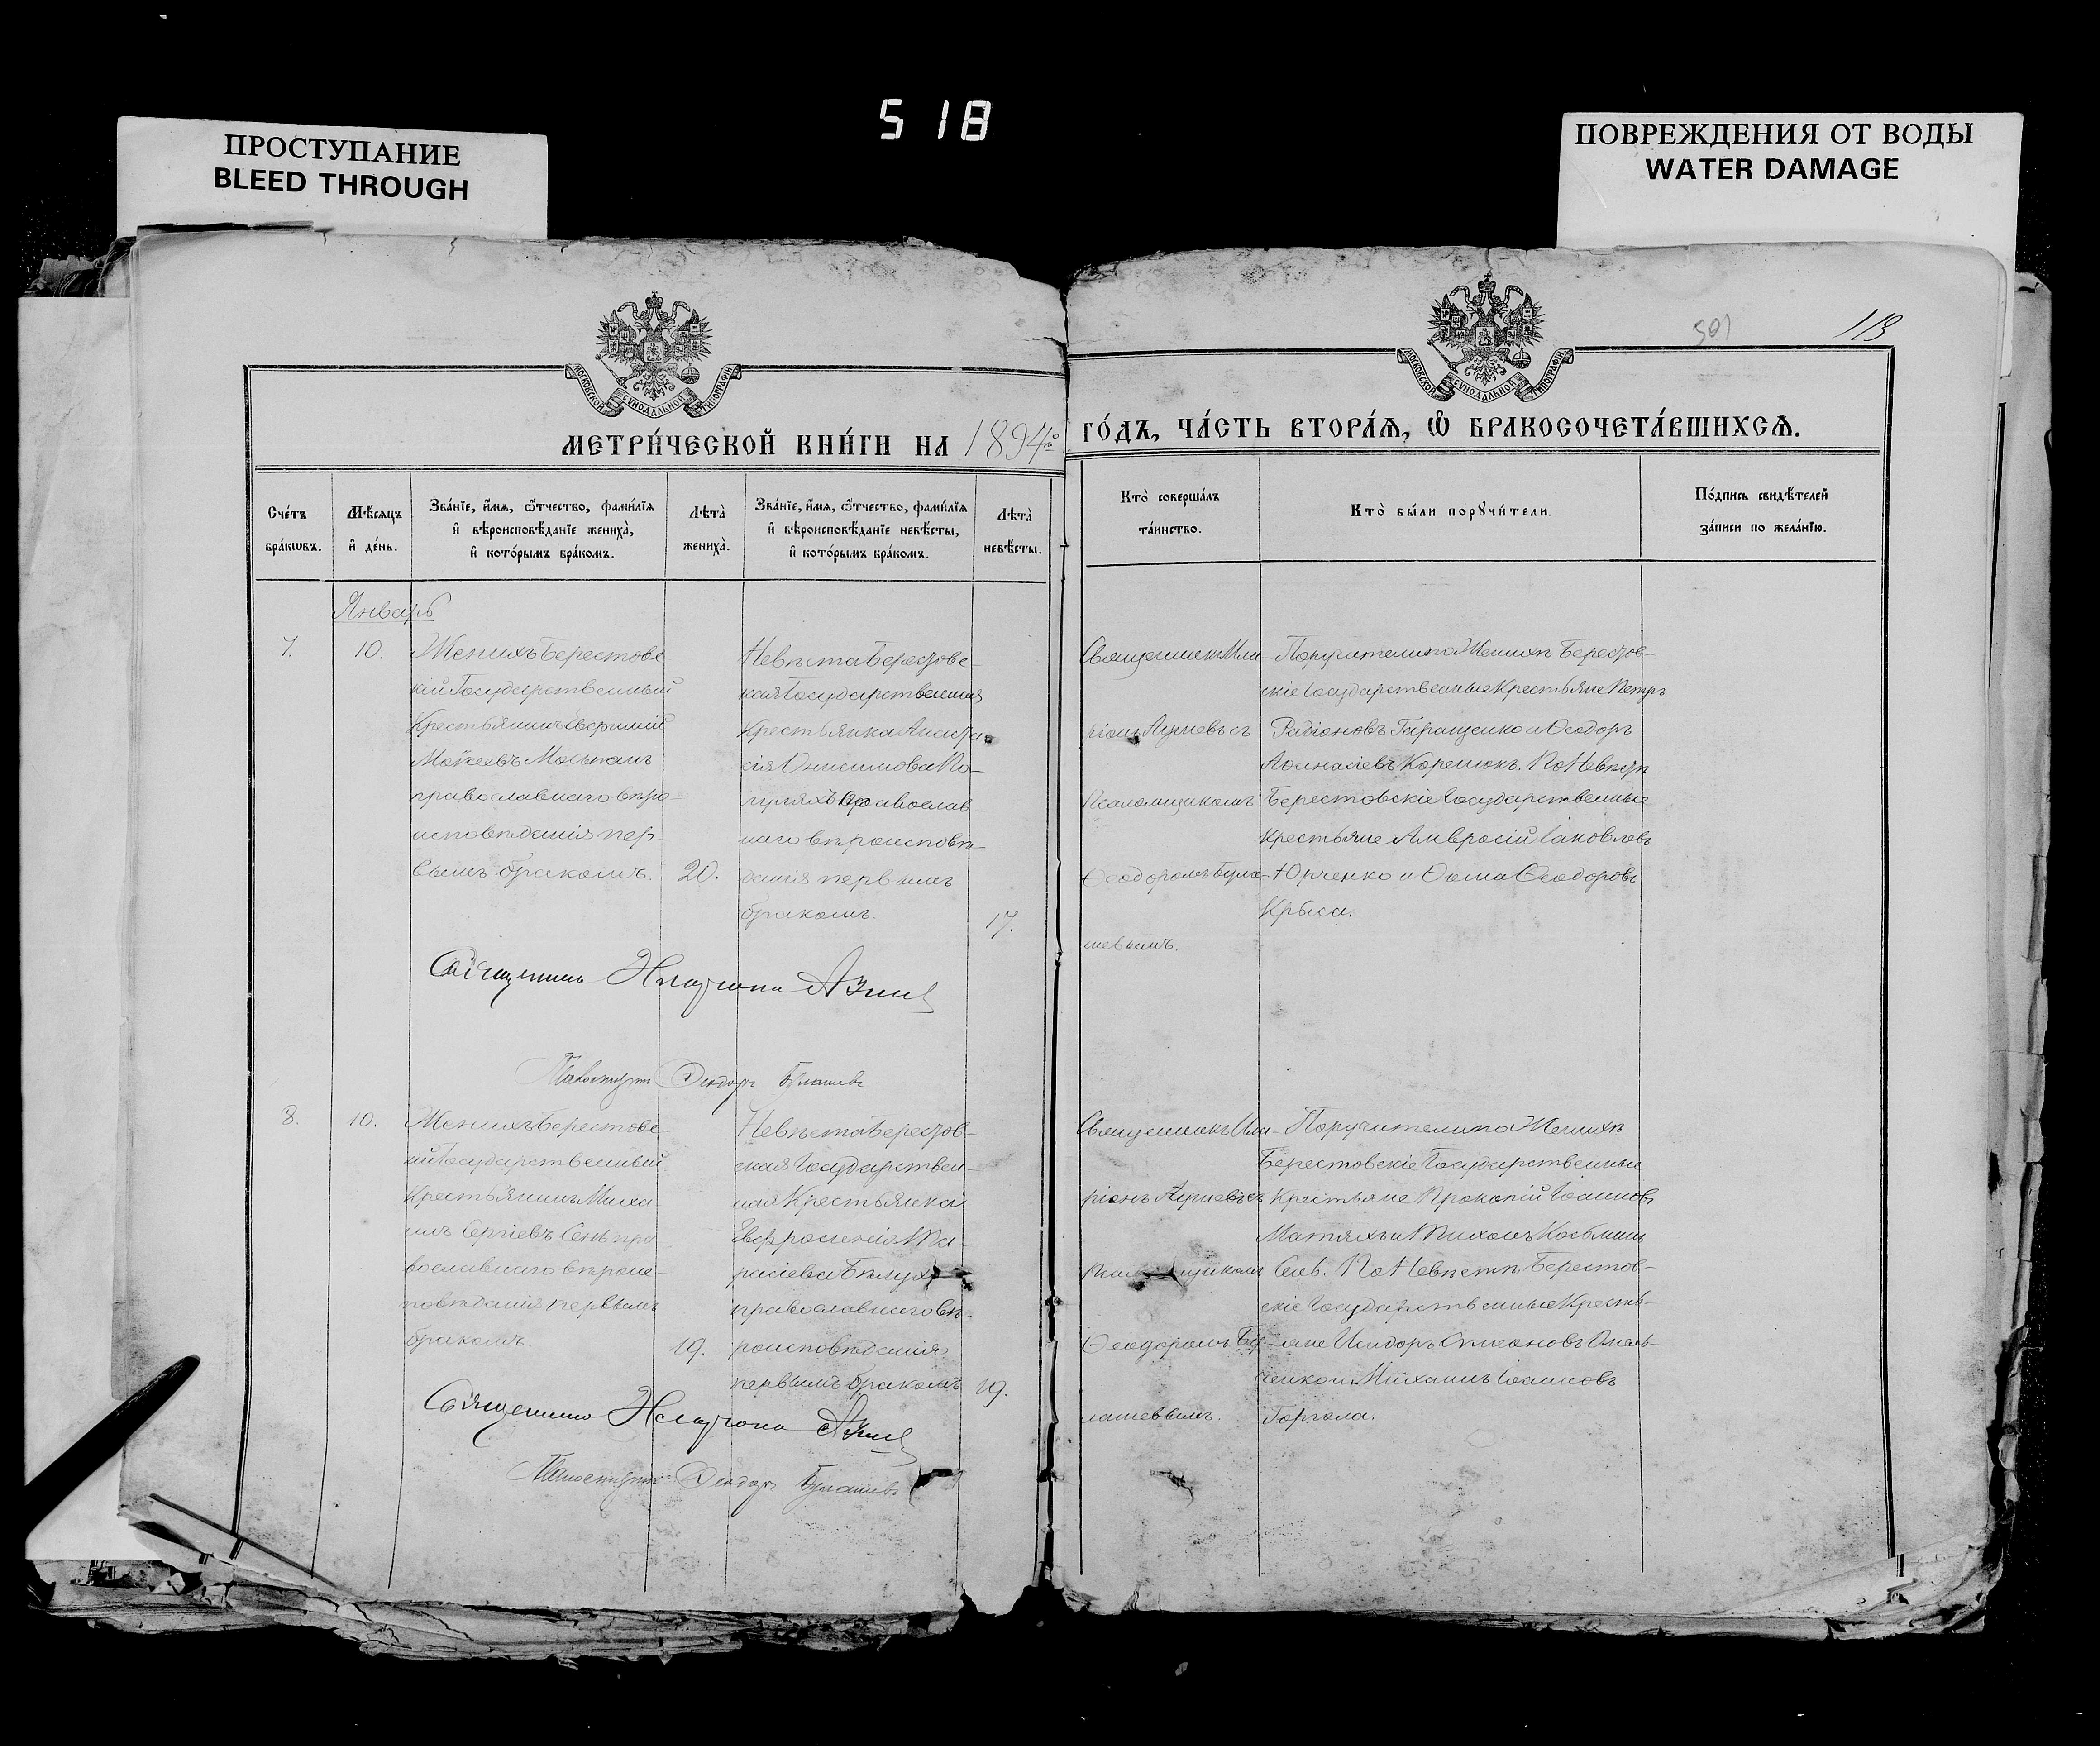 518
ПРОСТУПАНИЕ
BLEED THROUGH
ПОВРЕЖДЕНИЯ ОТ ВОДЫ
WATER DAMAGE
501
113
МОСКОВСКОЙ СѴНОДАЛЬНОЙ ТИПОГРАФІИ
МОСКОВСКОЙ СѴНОДАЛЬНОЙ ТИПОГРАФІИ
МЕТРИ́ЧЕСКОЙ КНИ́ГИ НА 1894й
ГО́ДЪ, ЧА́СТЬ ВТОРА́Ѧ, Ѡ҆ БРАКОСОЧЕТА́ВШИХСѦ.
Сче́тъ
бра́кѡвъ.
Мѣ́сяцъ
и҆ де́нь.
Зва́нїе, и҆́мѧ, ѻ҆́тчество, фами́лїѧ
и҆ вѣроисповѣ́данїе жениха̀,
и҆ кото́рымъ бра́комъ.
Лѣта̀
жениха̀.
Зва́нїе, и҆́мѧ, ѻ҆́тчество, фами́лїѧ
и҆ вѣроисповѣ́данїе невѣ́сты,
и҆ кото́рымъ бра́комъ.
Лѣта̀
невѣ́сты.
Кто̀ соверша́лъ
та́инство.
Кто̀ бы́ли порꙋчи́тели.
По́дпись свидѣ́телей
за́писи по жела́нїю.
Январь
7.
10.
Женихъ Берестовс
кій Государственный
Крестьянинъ Евфимій
Мокеевъ
православнаго вѣро-
исповѣданія пер-
вымъ бракомъ.
20.
Невѣста Берестовс-
кая Государственная
Крестьянка Анаста-
сія Онисимова По-
православ-
наго вѣроисповѣ-
данія первымъ
бракомъ.
17.
Священникъ Ила-
ріонъ Ацневъ съ
Псаломщикомъ
Ѳеодоромъ Була-
шевымъ.
Поручители по Женихѣ Берестов-
скіе Государственные Крестьяне Петръ
Радіоновъ Таращенко и Ѳеодоръ
Аѳанасіевъ Корешокъ. По Невѣстѣ
Берестовскіе Государственные
Крестьяне Амвросій Іаковлевъ
Юрченко и Ѳома Ѳеодоровъ
Крыса.
Священникъ Иларіонъ
Псаломщикъ Ѳеодоръ Булашевъ
8.
10.
Женихъ Берестовс-
кій Государственный
Крестьянинъ Миха
илъ Сергіевъ Сень пра
вославнаго вѣроис-
повѣданія первымъ
бракомъ.
19.
Невѣста Берестов-
ская Государствен-
ная Крестьянка
Евфросинія Та-
расіева Бѣлуха
православнаго вѣ-
роисповѣданія
первымъ бракомъ
19.
Священникъ Ила-
ріонъ Ацневъ съ
Псаломщикомъ
Ѳеодоромъ Бу-
лашевымъ.
Поручители по Женихѣ
Берестовскіе Государственные
Крестьяне Прокопій Іоанновъ
Матяхъ и Тихонъ Косьминъ
Сень. По Невѣстѣ Берестов-
скіе Государственные Кресть-
яне Исидоръ Симеоновъ Омель-
ченко и Михаилъ Іоанновъ
Горгола.
Священникъ Иларіонъ
Псаломщикъ Ѳеодоръ Булашевъ